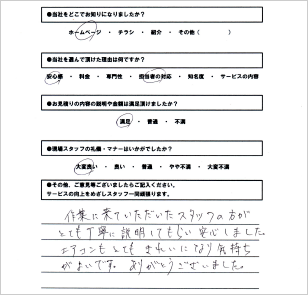 ●当社をどこでお知りになりましたか？
ホームページ ・ チラシ ・ 紹介 ・ その他（　　　）
●当社を選んで頂けた理由は何ですか？
安心感 ・ 料金 ・ 専門性 ・ 担当者の対応 ・ 知名度 ・ サービスの内容
●お見積りの内容の説明や金額は満足頂けましたか？
満足 ・ 普通 ・ 不満
●現場スタッフの礼儀・マナーはいかがでしたか？
大変良い ・ 良い ・ 普通 ・ やや不満 ・ 大変不満
●その他、ご意見等ございましたらご記入ください。
サービスの向上をめざしスタッフ一同頑張ります。
作業に来ていただいたスタッフの方が
とても丁寧に説明してもらい安心しました。
エアコンもとてもきれいになり気持ち
がよいです。ありがとうございました。